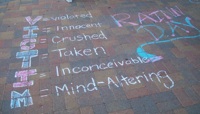 V = Violated
I = Innocent
C = Crushed
T = Taken
I = Inconceivable
M = Mind-Altering
DAY